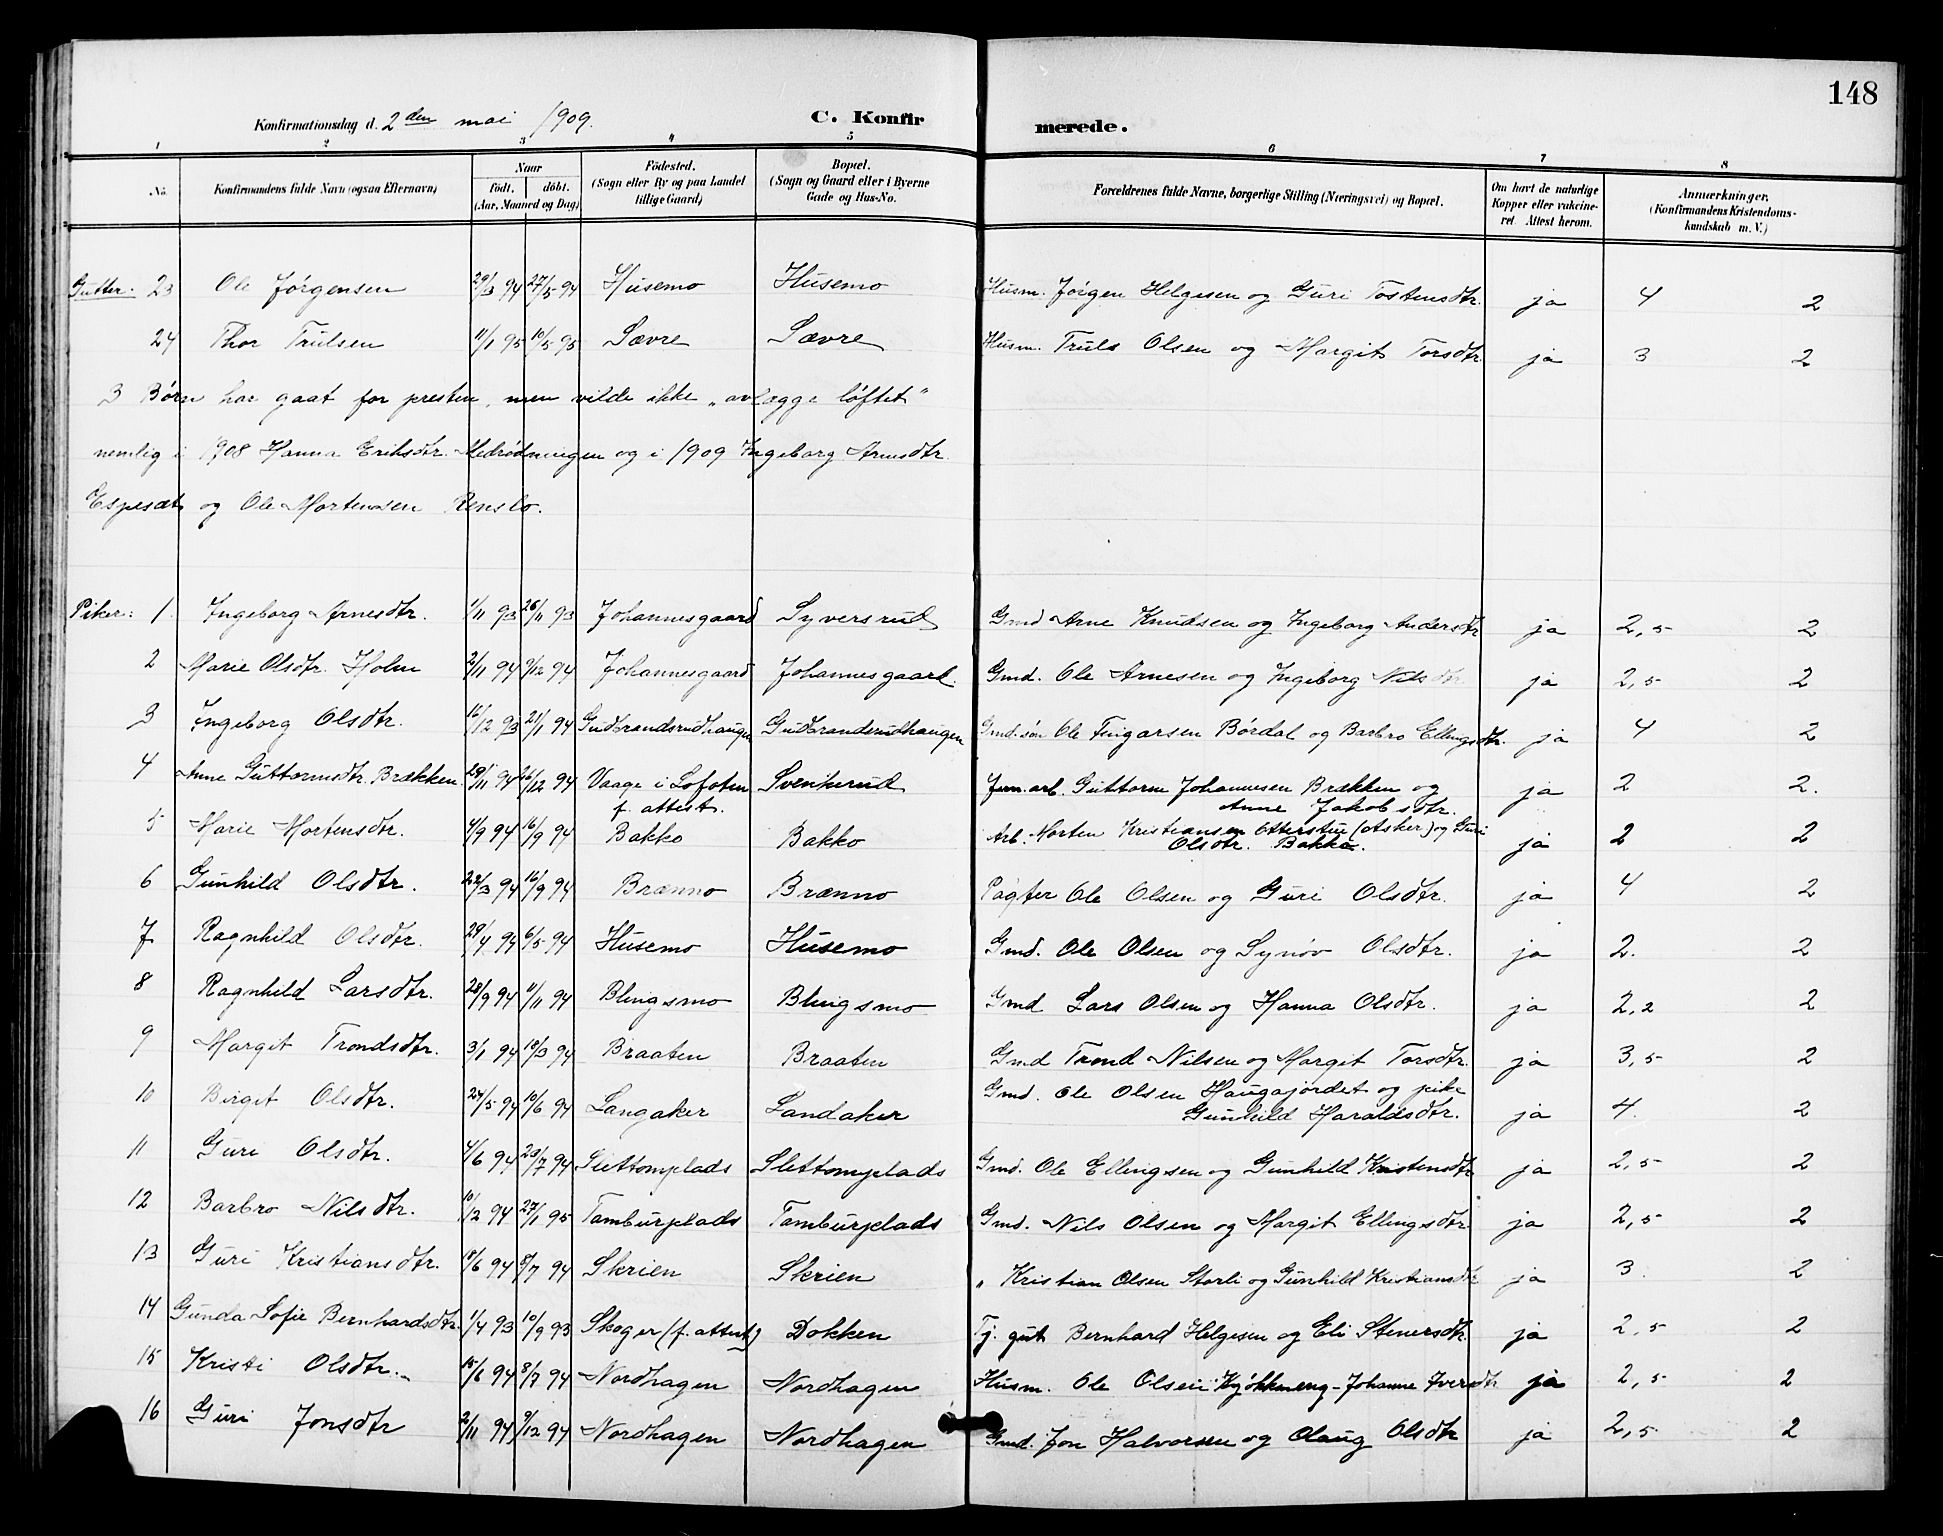 148
Konfirmationsdag d. 2den mai 1909.
C. Konfirmerede.
1 2 3 4 5 6 7 8
No. Konfirmandens fulde Navn (ogsaa Efternavn) Naar født. døbt. (Aar, Maaned og Dag) Födested. (Sogn eller By og paa Landet tillige Gaard) Bopæl. (Sogn og Gaard eller i Byerne Gade og Hus-No. Forældrenes fulde Navne, borgerlige Stilling (Næringsvei) og Bopæl. Om havt de naturlige Kopper eller vakcineret. Attest herom. Anmærkninger, (Konfirmandens Kristendomskundskab m. V.)
Gutter. 23 Ole Jørgensen 29/3 94 27/5 94 Husemo Husemo Husm. Jørgen Helgesen og Guri Tostensdtr. ja 4 2
24 Thor Trulsen 11/1 95 10/5 95 Sævre Sævre Husm. Truls Olsen og Margit Torsdtr. ja 3 2
3 Børn har gaat for presten, men vilde ikke „avlægge løftet"
nemlig i 1908 Hanna Eriksdtr. Medrødningen og i 1909 Ingeborg Arnesdtr.
Espesæt og Ole Mortensen Renslo.
Piker: 1. Ingeborg Arnesdtr. 1/11 93 26/11 93 Johannesgaard Syversrud Gmd Arne Knudsen og Ingeborg Andersdtr ja 2,5 2
2 Marie Olsdtr. Holm 2/11 94 9/12 94 Johannesgaard Johannesgaard. Gmd. Ole Arnesen og Ingeborg Nilsdtr. ja 2,5 2
3 Ingeborg Olsdtr. 16/12 93 21/1 94 Gudbrandsrudhaugen Gudbrandsrudhaugen Gmd.søn Ole Fingarsen Børdal og Barbro Ellingsdtr. ja 4 2
4 Anne Guttormsdtr. Brækken 29/11 94 26/12 94 Vaage i Lofoten f. attest. Svenkerud Jern.arb. Guttorm Johannesen Brækken og Anne Jakobsdtr. ja 2 2.
5 Marie Mortensdtr. 4/9 94 16/9 94 Bakko Bakko Arb. Morten Kristiansen Otterstue (Asker) og Guri Olsdtr. Bakko. ja 2 2
6 Gunhild Olsdtr. 22/3 94 16/9 94 Brænno Brænno Pagter Ole Olsen og Guri Olsdtr. ja 4 2
7 Ragnhild Olsdtr. 29/4 94 6/5 94 Husemo Husemo Gmd. Ole Olsen og Synøv Olsdtr. ja 2. 2
8 Ragnhild Larsdtr. 28/9 94 11/11 94 Blingsmo Blingsmo Gmd Lars Olsen og Hanna Olsdtr. ja 2,2 2
9 Margit Trondsdtr. 3/1 94 18/3 94 Braaten Braaten Gmd Trond Nilsen og Margit Torsdtr. ja 3,5 2
10 Birgit Olsdtr. 24/5 94 10/6 94 Langaker Landaker Gmd. Ole Olsen Haugajordet og pike Gunhild Haraldsdtr. ja 4. 2
11 Guri Olsdtr. 4/6 94 23/7 94 Slettomplads Slettomplads Gmd. Ole Ellingsen og Gunhild Kristensdtr ja 2,5 2
12 Barbro Nilsdtr. 10/12 94 27/1 95 Tamburplads Tamburplads Gmd. Nils Olsen og Margit Ellingsdtr ja 2,5 2
13 Guri Kristiansdtr. 18/6 94 8/7 94 Skrien Skrien „ Kristian Olsen Storli og Gunhild Kristiansdtr ja 3. 2
14 Gunda Sofie Bernhardsdtr. 1/4 93 10/9 93 Skoger (f. attest) Dokken Tj. gut Bernhard Helgesen og Eli Stenersdtr. ja 2,5 2
15 Kristi Olsdtr. 15/6 94 8/7 94 Nordhagen Nordhagen Husm. Ole Olsen Kjøkkeneng - Johanne Iversdtr ja 2,5 2
16 Guri Jonsdtr 2/11 94 9/12 94 Nordhagen Nordhagen Gmd. Jon Halvorsen og Olaug Olsdtr ja 2,5 2